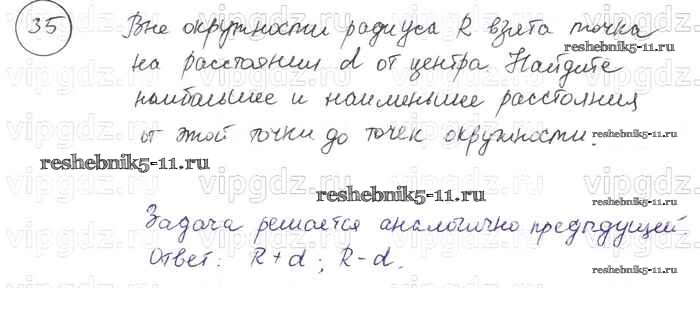 35 Вне окружности радиуса R взята точка
на расстоянии d от центра. Найдите
наибольшее и наименьшее расстояния
от этой точки до точек окружности.
Задача решается аналогично предыдущей.
Ответ: R+d; R-d.
reshebnik5-11.ru
reshebnik5-11.ru
reshebnik5-11.ru
reshebnik5-11.ru
reshebnik5-11.ru
vipgdz.ru